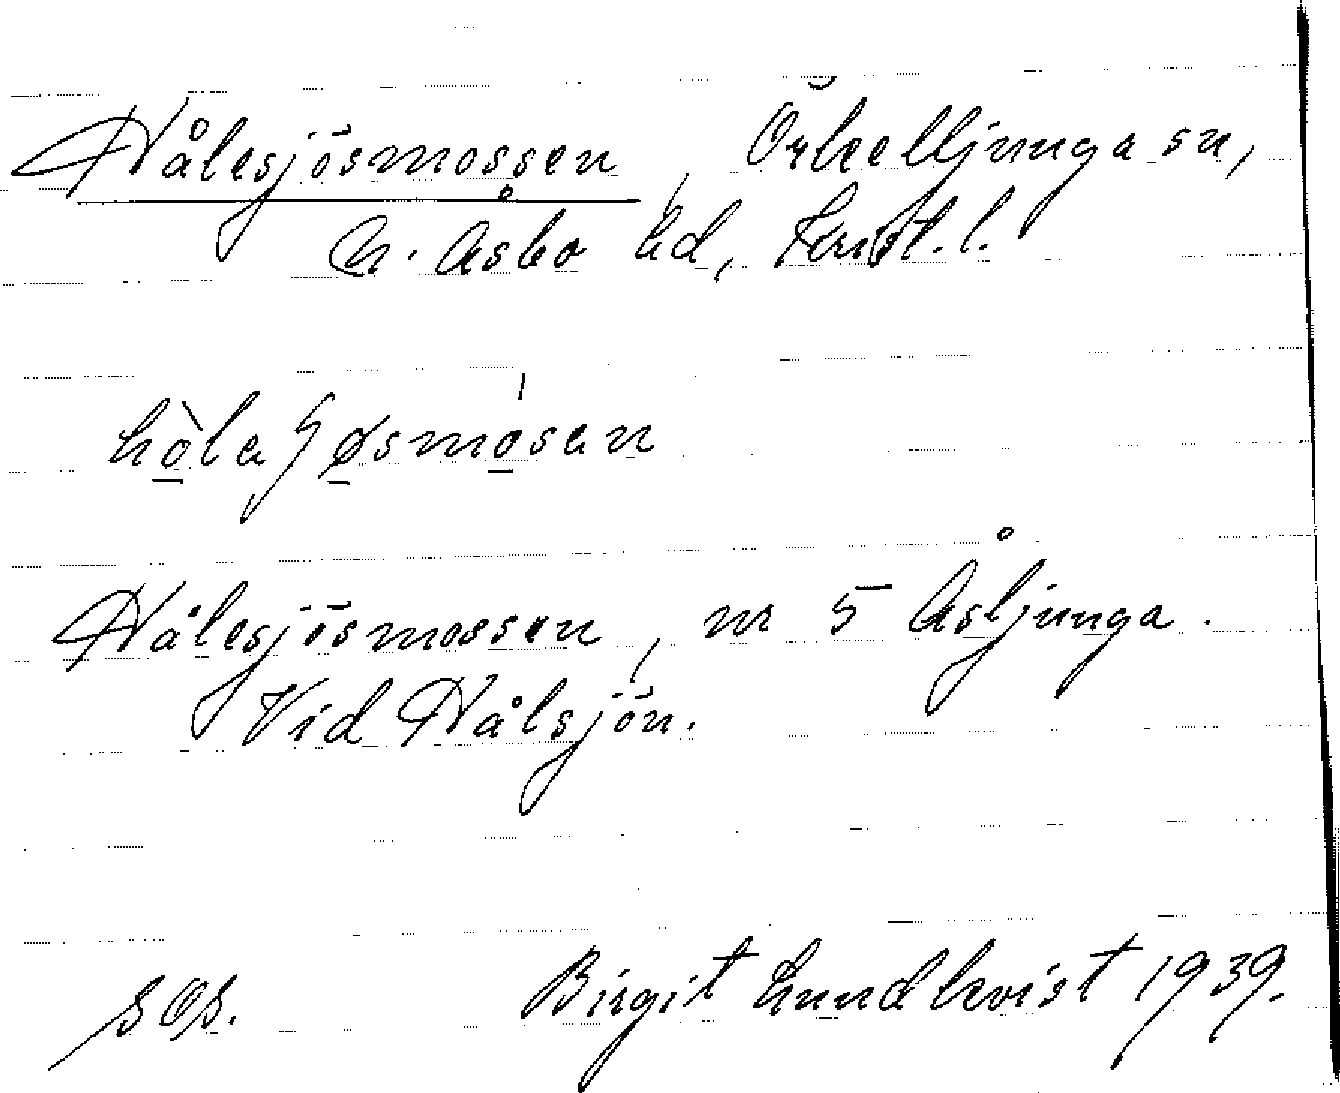 Hålesjösmossen, Örkelljunga sn,
N. Åsbo hd, Krist. l.
hò̱laʃø̱smó̱san
Hålesjösmossen, nr 5 Åsljunga.
Vid Hålsjön.
SOS. Birgit Lundkvist 1939.